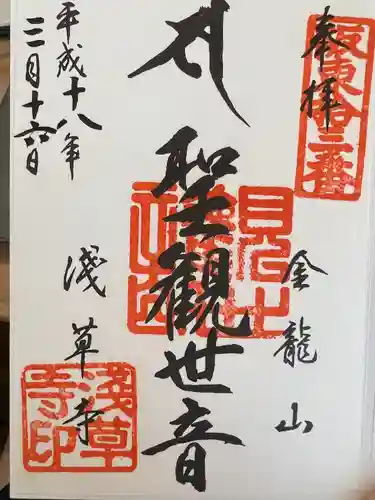 奉拝
坂東拾三番
金龍山
聖観世音
浅草寺
平成十八年
三月十六日
淺草
寺印